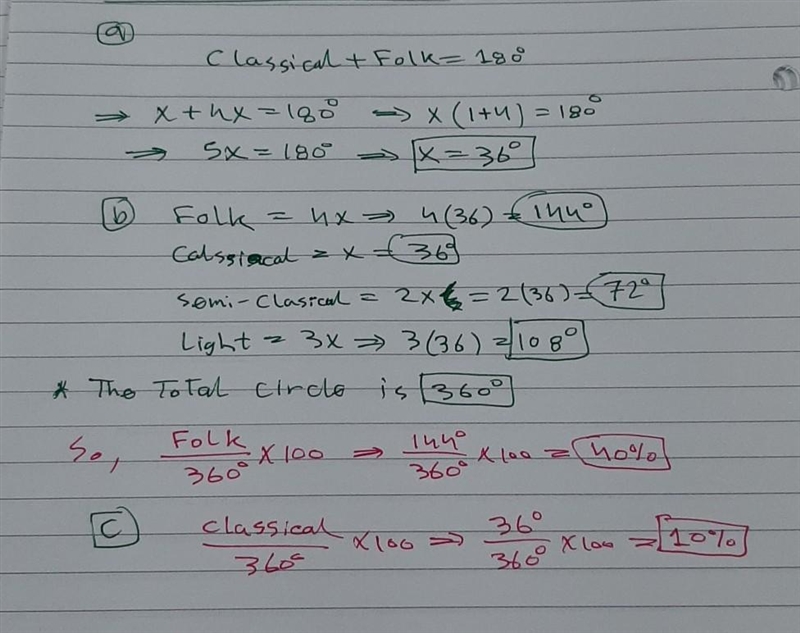 a
Classical + Folk = 180°
⇒ x + 4x = 180° → x (1+4) = 180°
⇒ 5x = 180° ⇒ x = 36°
b Folk = 4x ⇒ 4(36) = 144°
Calssical = x = 36°
Semi-Clasical = 2x = 2(36) = 72°
Light = 3x ⇒ 3(36) = 108°
* The Total circle is 360°
So, Folk/360° × 100 ⇒ 144°/360° × 100 = 40%
C classical/360° × 100 ⇒ 36°/360° × 100 = 10%